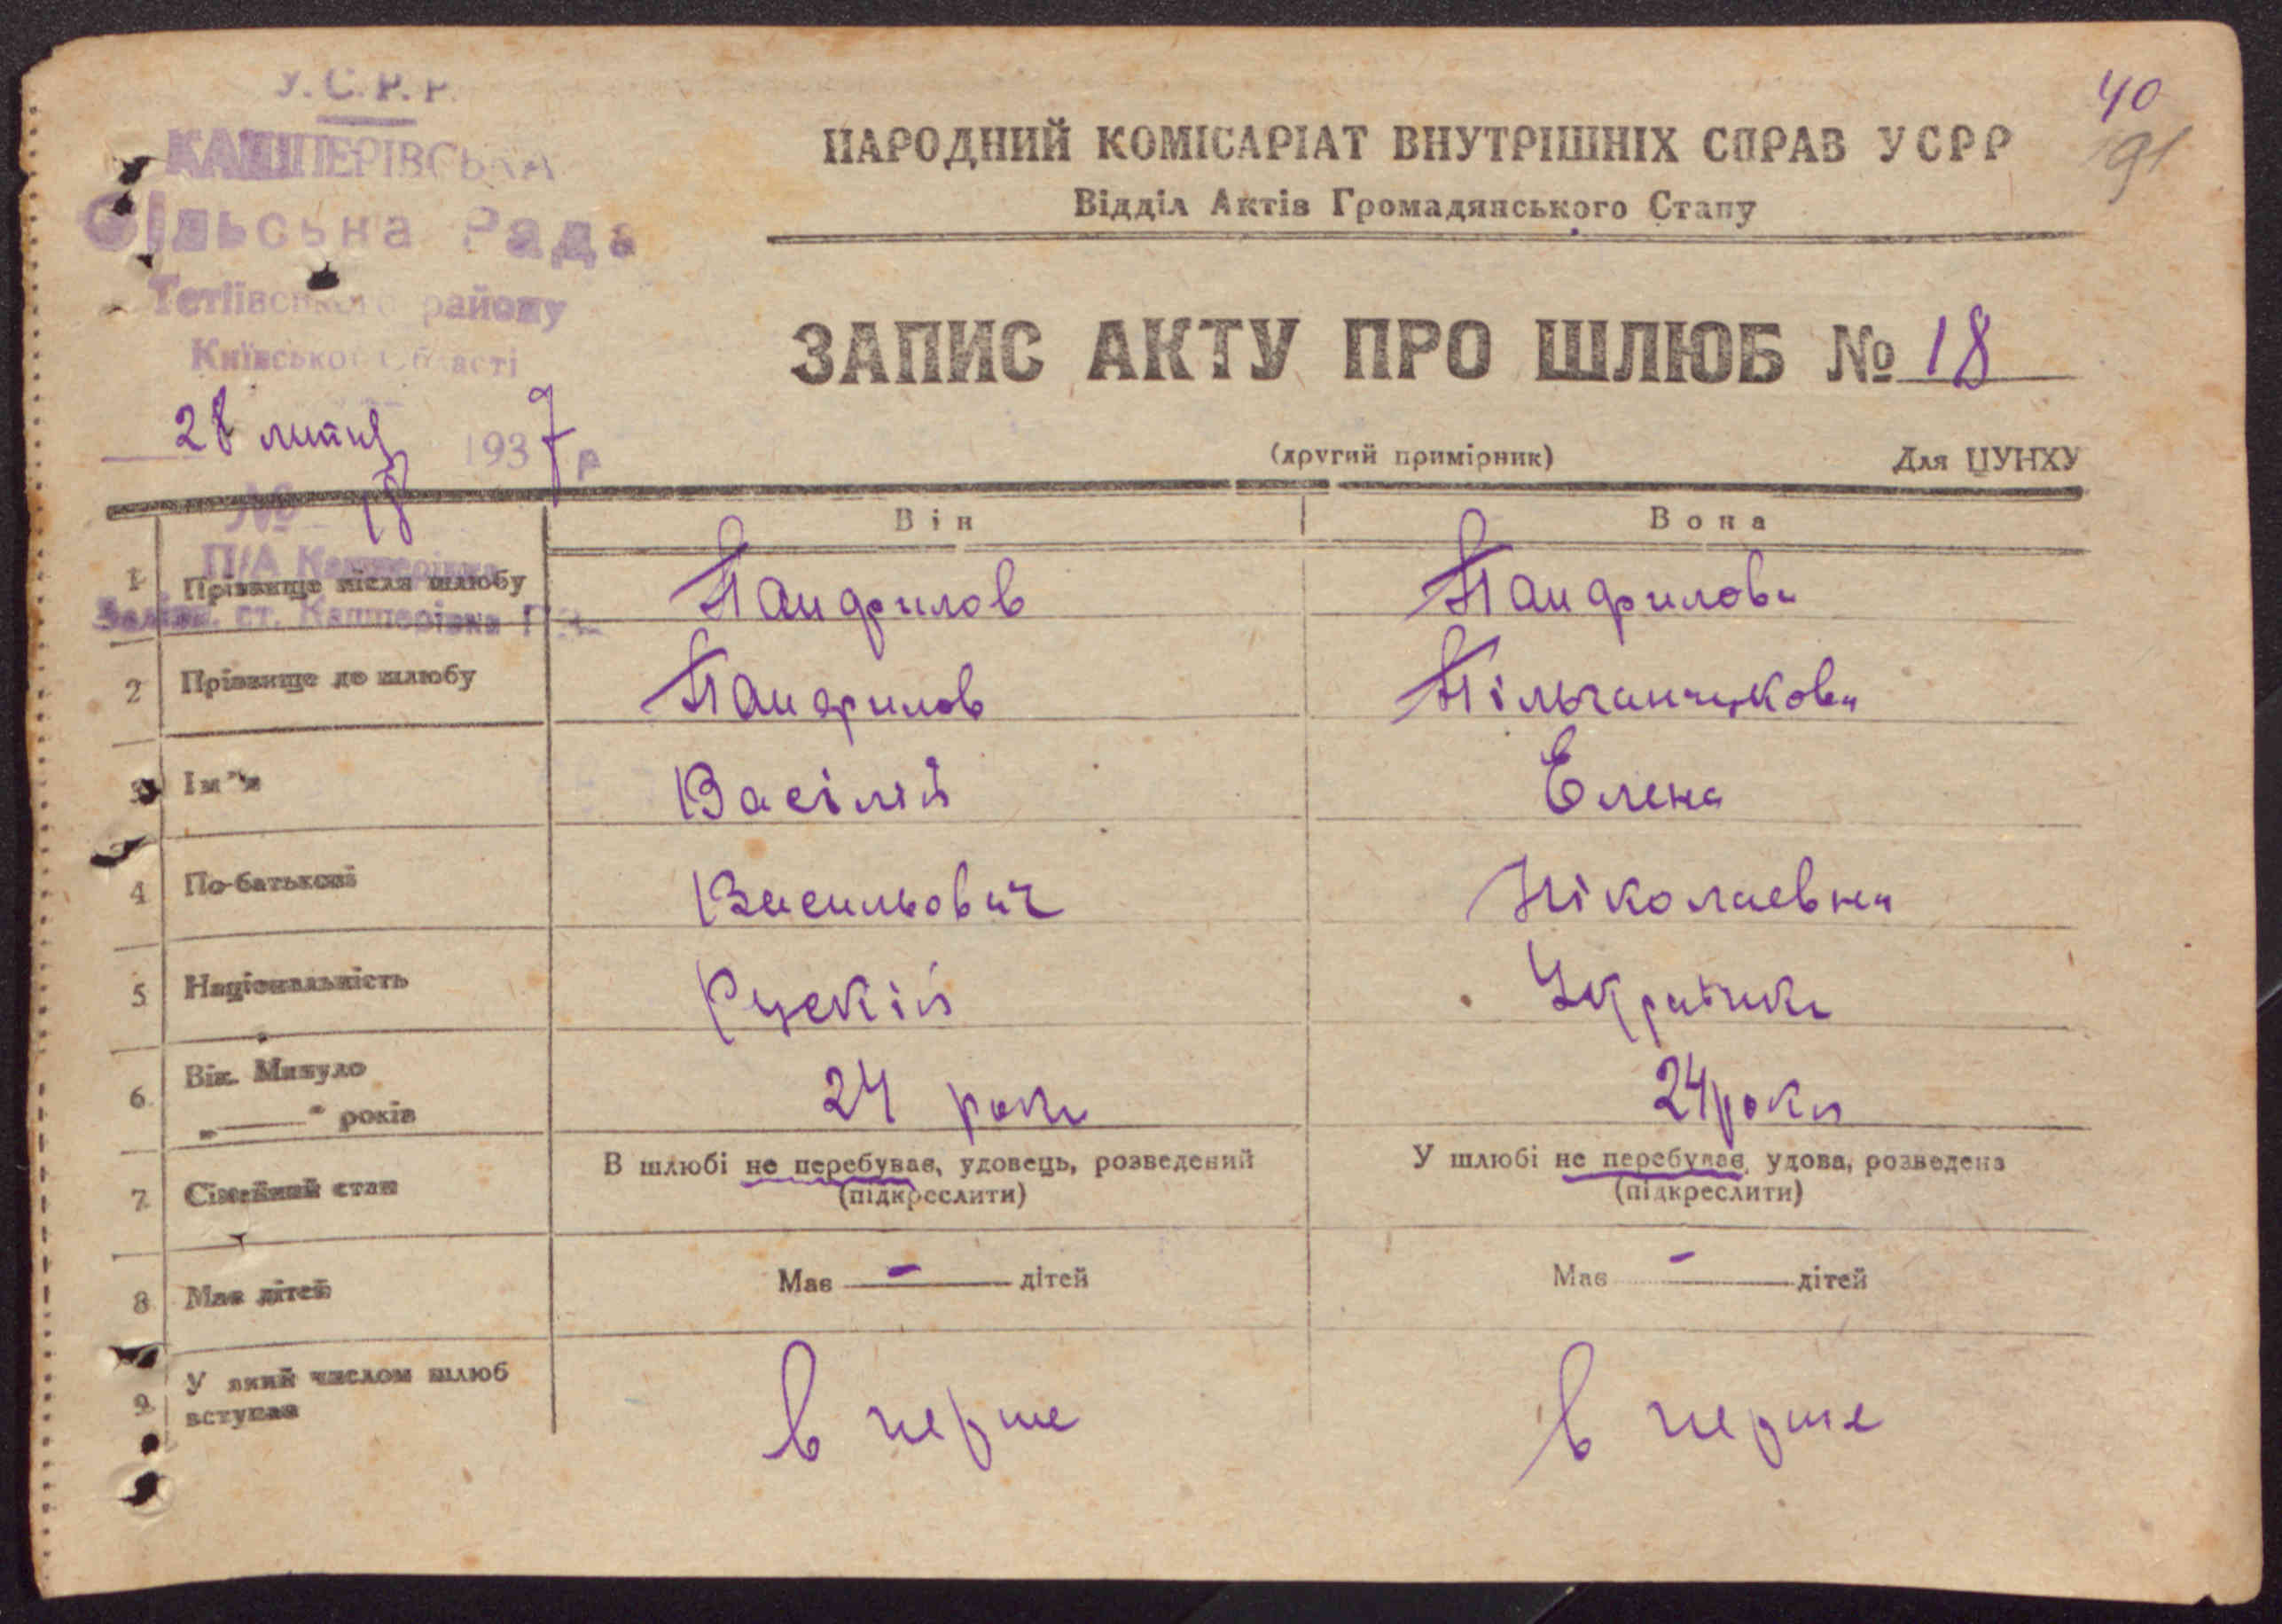 У.С.Р.Р.
КАШПЕРІВСЬКА
Сільська Рада
Тетіївського району
Київської Області
28 липня 1937 р
№ 18
П/А Кашперівка
Залізн. ст. Кашперівка
40
91
НАРОДНИЙ КОМІСАРІАТ ВНУТРІШНІХ СПРАВ УСРР
Відділ Актів Громадянського Стану
ЗАПИС АКТУ ПРО ШЛЮБ № 18
(другий примірник) Для ЦУНХУ
Він Вона
1 Прізвище після шлюбу Панфилов Панфилова
2 Прізвище до шлюбу Панфилов Пільганчукова
3 Ім'я Васілій Елена
4 По-батькові Васильович Ніколаевна
5 Національність Рускій Українка
6 Вік. Минуло 24 роки 24 роки
„——" років
7 Сімейний стан В шлюбі не перебував, удовець, розведений У шлюбі не перебуває, удова, розведена
(підкреслити) (підкреслити)
8 Має дітей Має - дітей Має - дітей
9 У який числом шлюб
вступає в перше в перше